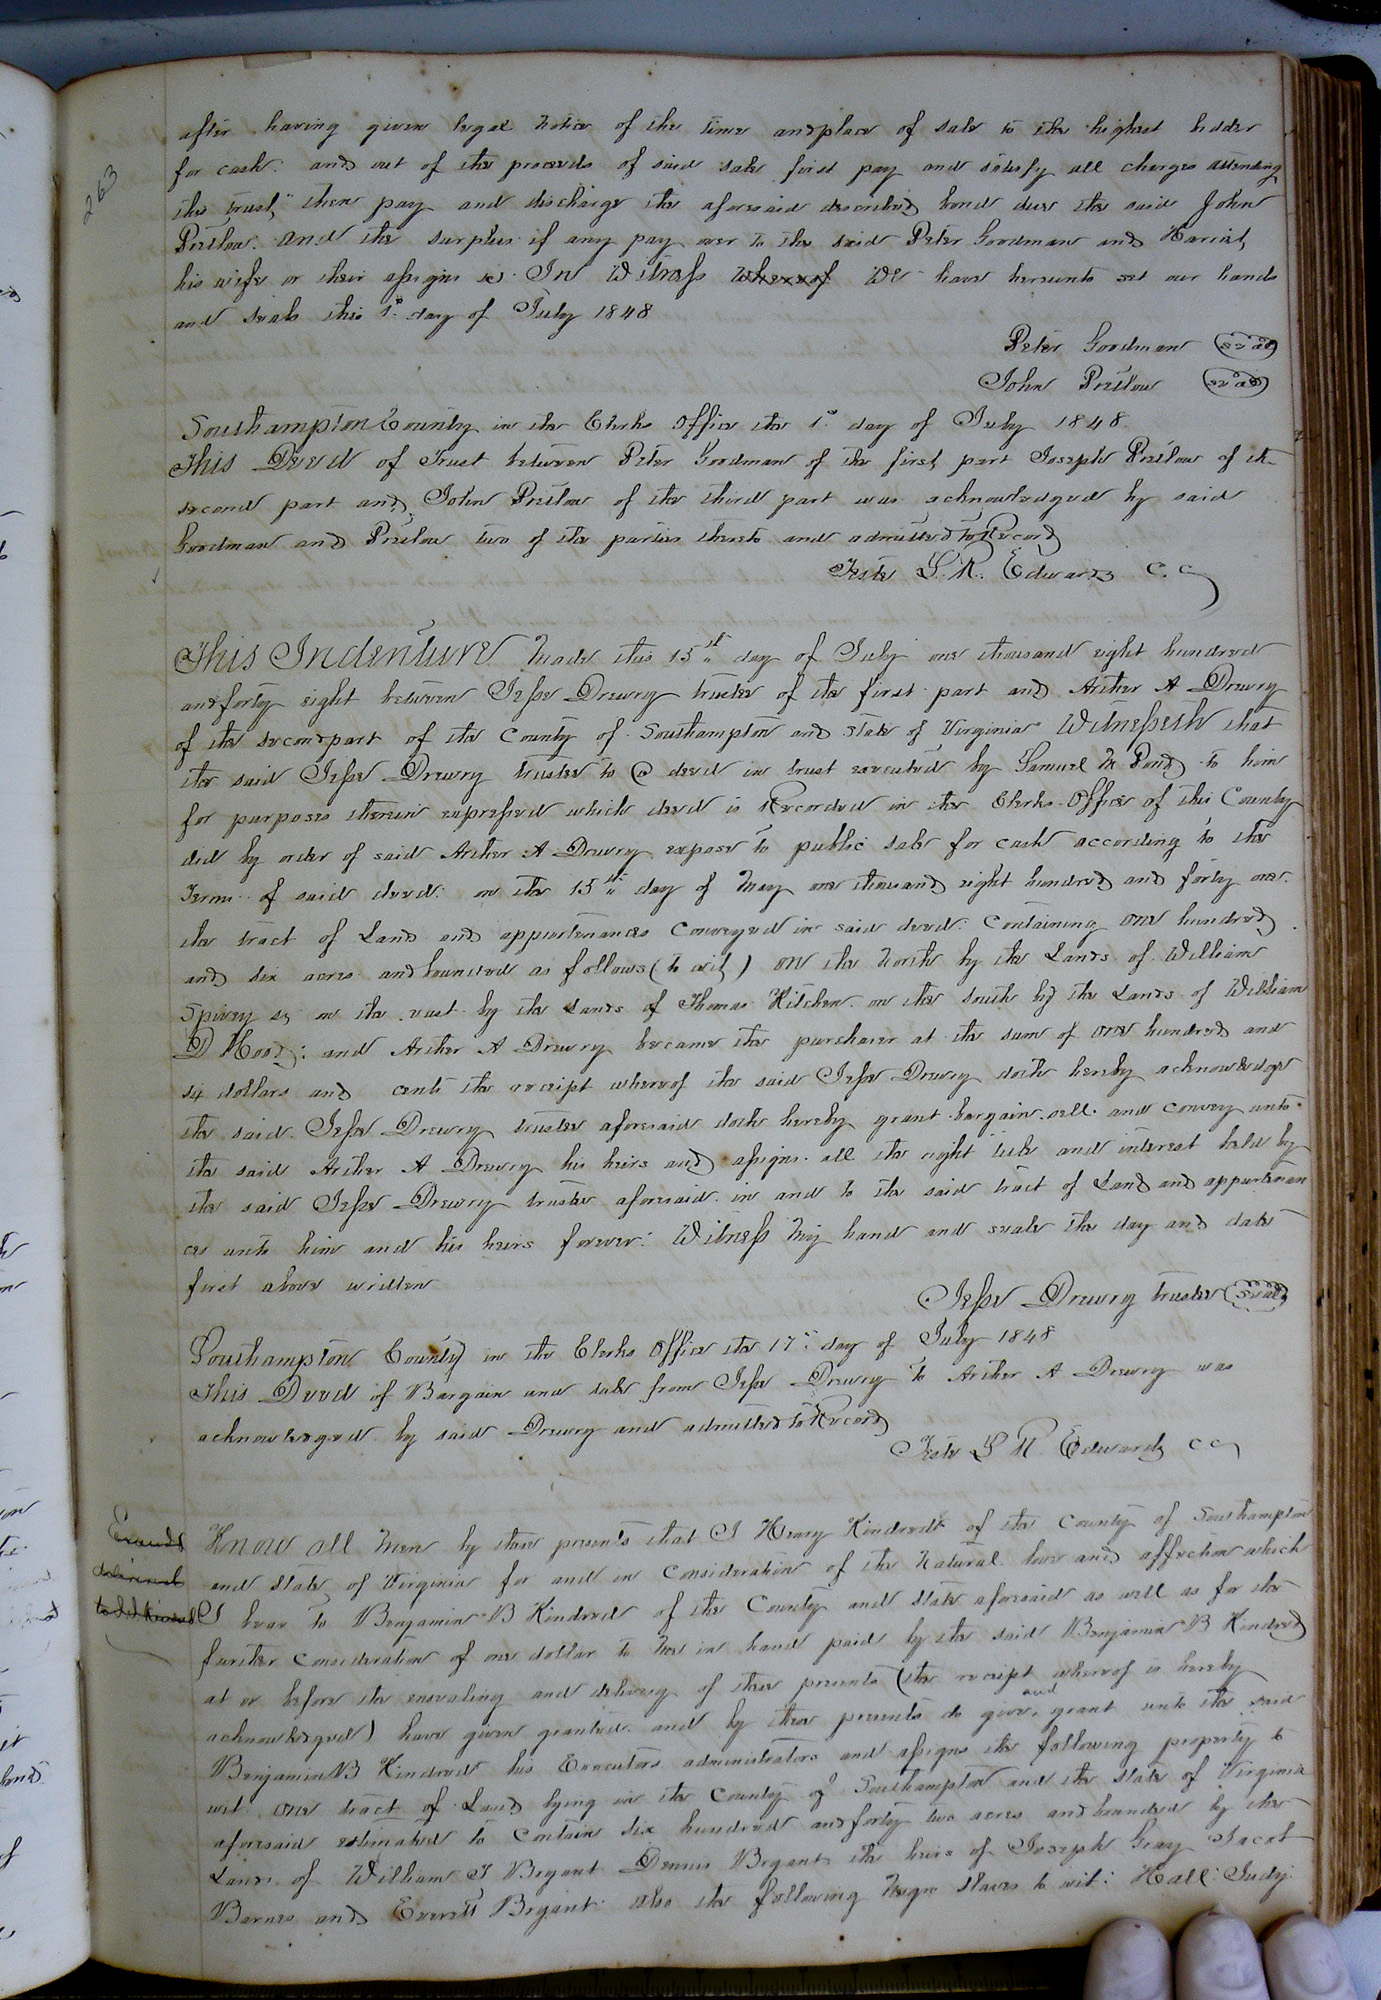 263
after having given legal notice of the time and place of sale to the highest bidder
for cash. and out of the proceeds of said sale first pay and satisfy all charges attending
this trust, then pay and discharge the aforesaid described bond due the said John
Pretlow. and the surplus if any pay over to the said Peter Goodman and Hariet,
his wife or their assigns &c. In Witness whereof We have hereunto set our hands
and seals this 1st day of July 1848
Peter Goodman (seal)
John Pretlow (seal)
Southampton County in the Clerks Office the 1st day of July 1848.
This Deed of Trust between Peter Goodman of the first part Joseph Pretlow of the
second part and John Pretlow of the third part was acknowledged by said
Goodman and Pretlow two of the parties thereto and admitted to Record
Teste L. R. Edwards C. C
This Indenture made this 15th day of July one thousand eight hundred
and forty eight between Jesse Drewry trustee of the first part and Archer A Drewry
of the second part of the County of Southampton and State of Virginia Witnesseth that
the said Jesse Drewry trustee to a deed in trust executed by Samuel M Pond to him
for purposes therein expressed which deed is Recorded in the Clerks Office of this County
did by order of said Archer A Drewry expose to public sale for cash according to the
terms of said deed: on the 15th day of May one thousand eight hundred and forty one.
the tract of Land and appurtenances Conveyed in said deed. Containing one hundred
and six acres and bounded as follows (to wit,) on the North by the Lands of William
Spivey on the east by the Lands of Thomas Kitchen on the South by the Lands of William
D Hood; and Archer A Drewry became the purchaser at the sum of one hundred and
six dollars and cents the receipt whereof the said Jesse Drewry doth hereby acknowledge
the said Jesse Drewry trustee aforesaid doth hereby grant bargain sell and convey unto
the said Archer A Drewry his heirs and assigns all the right title and interest held by
the said Jesse Drewry trustee aforesaid in and to the said tract of Land and appurtenan
ces unto him and his heirs forever: Witness my hand and seale the day and date
first above written
Jesse Drewry trustee (seal)
Southampton County in the Clerks Office the 17th day of July 1848
This Deed of Bargain and sale from Jesse Drewry to Archer A Drewry was
acknowledged by said Drewry and admitted to Record
Teste L R. Edwards CC
Know all men by these presents that I Henry Kindred of the County of Southampton
and State of Virginia for and in Consideration of the Natural love and affection which
I bear to Benjamin B Kindred of the County and State aforesaid as well as for the
further consideration of one dollar to me in hand paid by the said Benjamin B Kindred
at or before the ensealing and delivery of these presents (the receipt whereof is hereby
acknowledged) have given granted and by these presents do give and grant unto the said
Benjamin B Kindred his Executors administrators and assigns the following property to
wit. one tract of Land lying in the County of Southampton and the State of Virginia
aforesaid estimated to Contain six hundred and forty two acres and bounded by the
Lands of William J Bryant Dennis Bryant the heirs of Joseph Gray Jacob
Barnes and Everett Bryant also the following Negro Slaves to wit: Hall: Judy